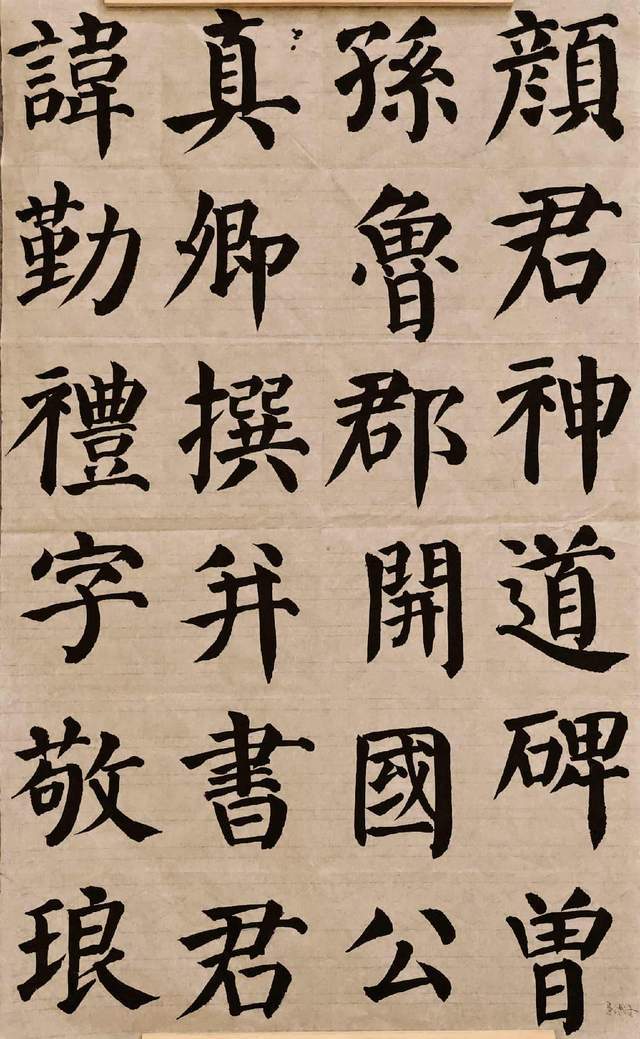 顏君神道碑曽
孫魯郡開國公
真卿撰并書君
諱勤禮字敬琅